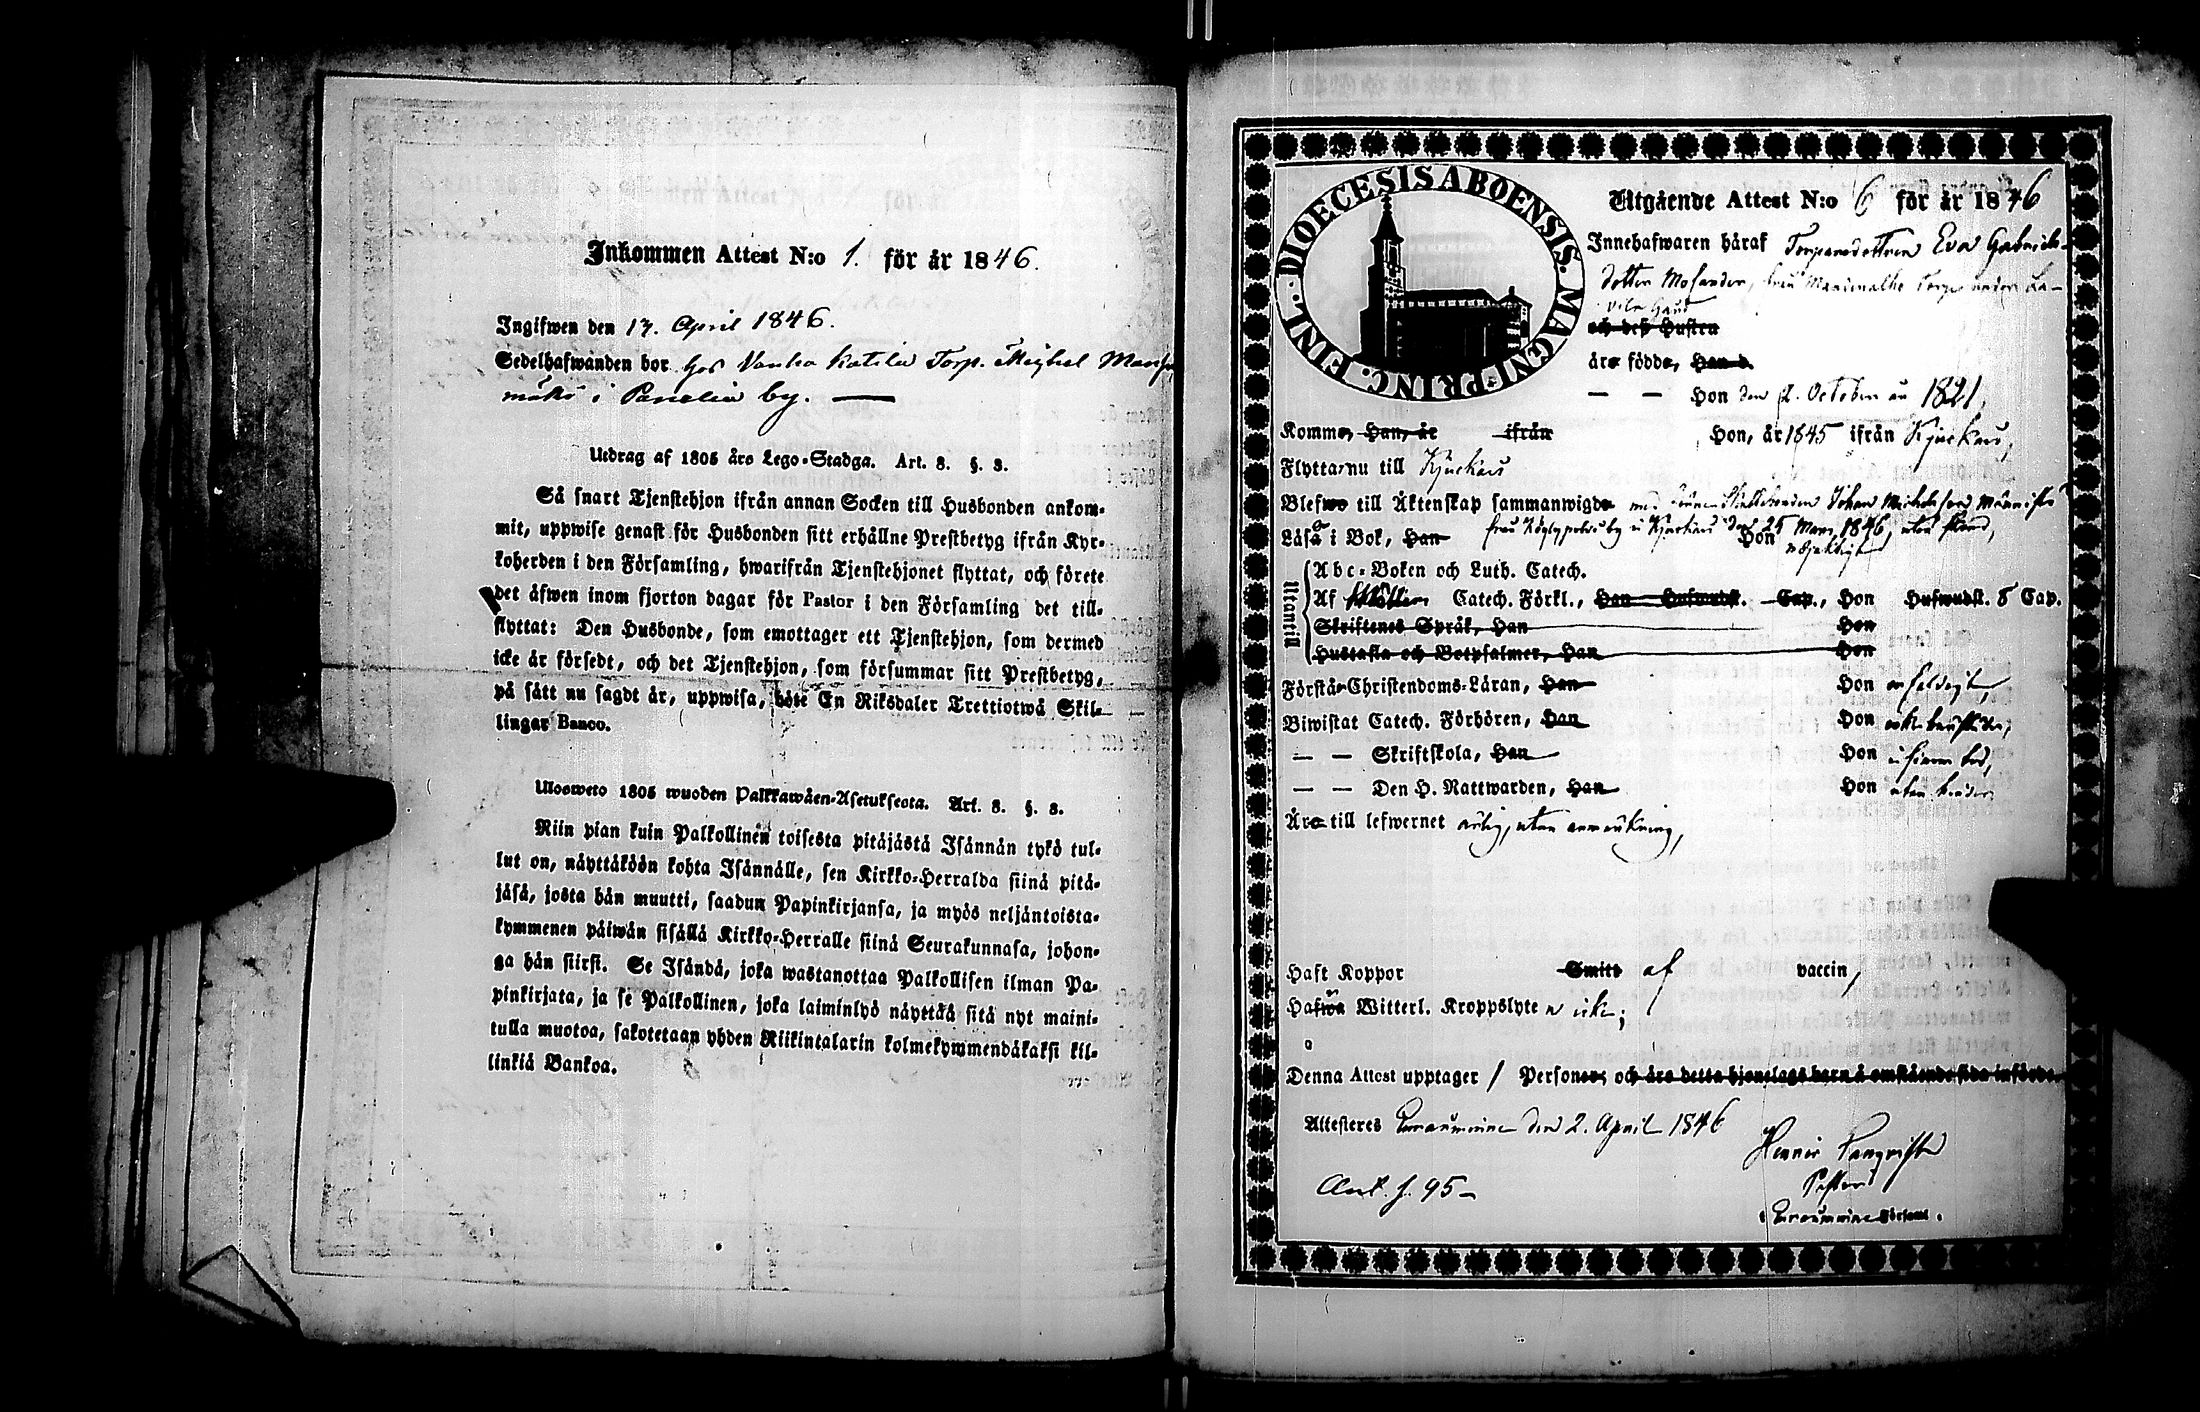 Inkommen Attest N:o 1. för år 1846.
Ingifwen den 17. April 1846.
Sedelhafwanden bor hos Torp.
i Panelia by. —
Utdrag af 1805 års Lego-Stadga. Art. 8. §. 3.
Så snart Tjenstehjon ifrån annan Socken till Husbonden ankom-
mit, uppwise genast för Husbonden sitt erhållne Prestbetyg ifrån Kyr-
koherden i den Församling, hwarifrån Tjenstehjonet flyttat, och förete
det äfwen inom fjorton dagar för Pastor i den Församling det till-
flyttat: Den Husbonde, som emottager ett Tjenstehjon, som dermed
icke är försedt, och det Tjenstehjon, som försummar sitt Prestbetyg,
på sätt nu sagdt är, uppwisa, böte En Riksdaler Trettiotwå Skil-
lingar Banco.
Ulosweto 1805 wuoden Palkkawäen-Asetuksesta. Art. 8. §. 3.
Niin pian kuin Palkollinen toisesta pitäjästä Isännän tykö tul-
lut on, näyttäköön kohta Isännälle, sen Kirkko-Herralda siinä pitä-
jäsä, josta hän muutti, saadun Papinkirjansa, ja myös neljäntoista-
kymmenen päiwän sisällä Kirkko-Herralle siinä Seurakunnasa, johon-
ga hän siirsi. Se Isändä, joka wastanottaa Palkollisen ilman Pa-
pinkirjata, ja se Palkollinen, joka laiminlyö näyttää sitä nyt maini-
tulla muotoa, sakotetaan yhden Riikintalarin kolmekymmendäkaksi kil-
linkiä Bankoa.
DIOECESIS ABOENSIS. MAGNI PRINC. FINL.
Utgående Attest N:o 6 för år 1846
Innehafwaren häraf Torparedottren Eva Gabriels-
dotter Molander, från Torp under La-
vila
och deß Hustru
äro födde, Han d.
— — Hon den 2. October år 1821,
Komme, Han, år ifrån Hon, år 1845 ifrån Kjukais,
Flytta nu till Kjukais
Blefwo till Äktenskap sammanwigde med Johan Michelsson
Läsa i Bok, Han från by i Kjukais den 25 Mars 1846, utan
Hon
Utantill
Abc-Boken och Luth. Catech.
Af Catech. Förkl., Han Hufwudst. Cap., Hon Hufwudst. 8 Cap.
Skriftenes Språk, Han Hon
Hustafla och Botpsalmer, Han Hon
Förstå Christendoms-Läran, Han Hon
Biwistat Catech. Förhören, Han Hon
— — Skriftskola, Han Hon
— — Den H. Nattwarden, Han Hon utan hinder,
Äro till lefwernet ärlig, utan anmärkning,
Haft Koppor Smitt af vaccin,
Hafwa Witterl. Kroppslyte icke;
Denna Attest upptager 1 Personer, och äro detta hjonelags barn å omstående sida införde.
Attesteras Euraåminne den 2. April 1846
Henric
Pastor
Euraåminne Församl.
Ant. f. 95 —